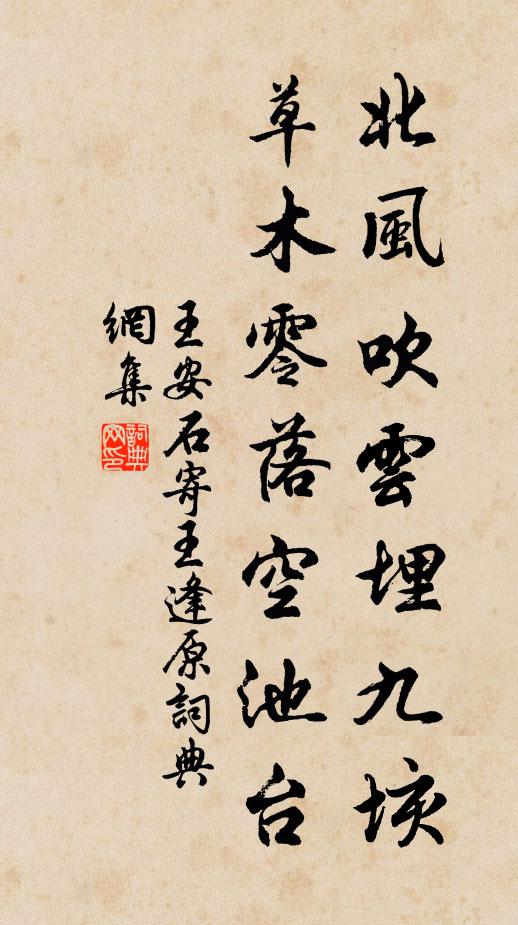 北風吹雲埋九垓
草木零落空池台
王安石寄王逢原詞典
網集
詞典
网印